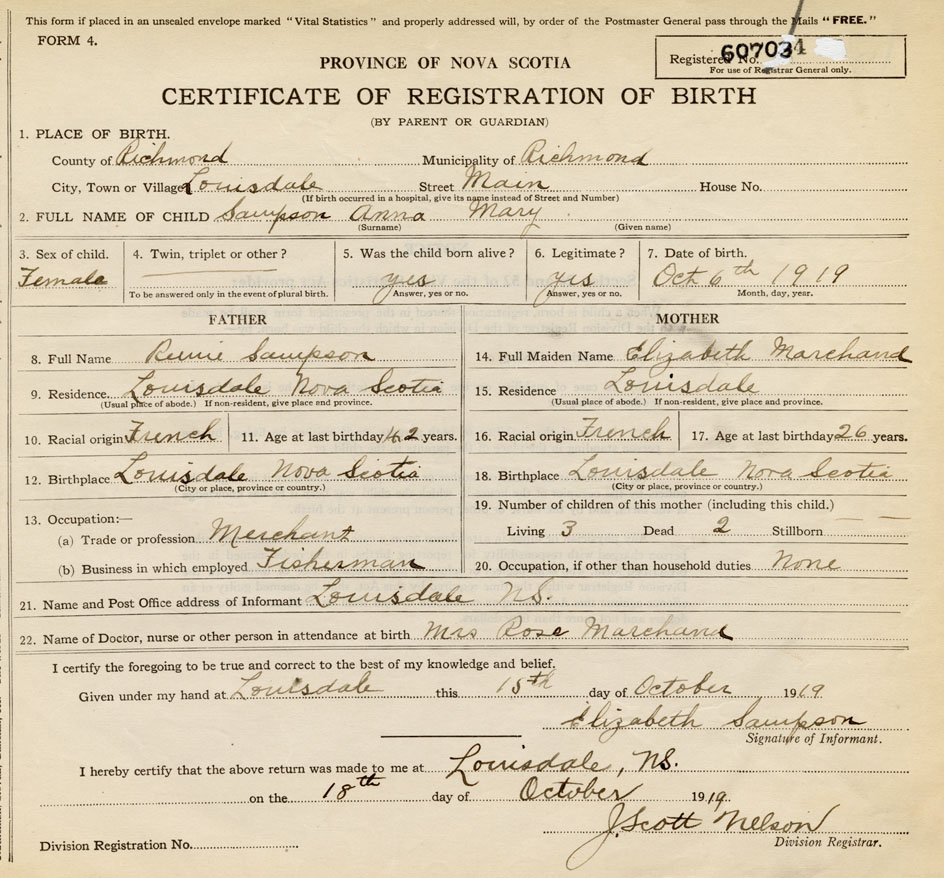 This form if placed in an unsealed envelope marked "Vital Statistics" and properly addressed will, by order of the Postmaster General pass through the Mails "FREE."
FORM 4.
Registered No. 607034
For use of Registrar General only.
PROVINCE OF NOVA SCOTIA
CERTIFICATE OF REGISTRATION OF BIRTH
(BY PARENT OR GUARDIAN)
1. PLACE OF BIRTH.
County of Richmond Municipality of Richmond
City, Town or Village Louisdale Street Main House No.
(If birth occurred in a hospital, give its name instead of Street and Number)
2. FULL NAME OF CHILD Sampson Anna Mary
(Surname) (Given name)
3. Sex of child. 4. Twin, triplet or other? 5. Was the child born alive? 6. Legitimate? 7. Date of birth.
Female yes yes Oct 6th 1919
To be answered only in the event of plural birth. Answer, yes or no. Answer, yes or no. Month, day, year.
FATHER
8. Full Name Sampson
9. Residence. Louisdale Nova Scotia
(Usual place of abode.) If non-resident, give place and province.
10. Racial origin French 11. Age at last birthday 42 years.
12. Birthplace Louisdale Nova Scotia
(City or place, province or country.)
13. Occupation:—
(a) Trade or profession Merchant
(b) Business in which employed Fisherman
MOTHER
14. Full Maiden Name Elizabeth Marchand
15. Residence Louisdale
(Usual place of abode.) If non-resident, give place and province.
16. Racial origin French 17. Age at last birthday 26 years.
18. Birthplace Louisdale Nova Scotia
(City or place, province or country.)
19. Number of children of this mother (including this child.)
Living 3 Dead 2 Stillborn
20. Occupation, if other than household duties None
21. Name and Post Office address of Informant Louisdale N.S.
22. Name of Doctor, nurse or other person in attendance at birth Mrs Rose Marchand
I certify the foregoing to be true and correct to the best of my knowledge and belief.
Given under my hand at Louisdale this 15th day of October 1919
Elizabeth Sampson
Signature of Informant.
I hereby certify that the above return was made to me at Louisdale, NS.
on the 18th day of October 1919
J. Scott Nelson
Division Registrar.
Division Registration No.